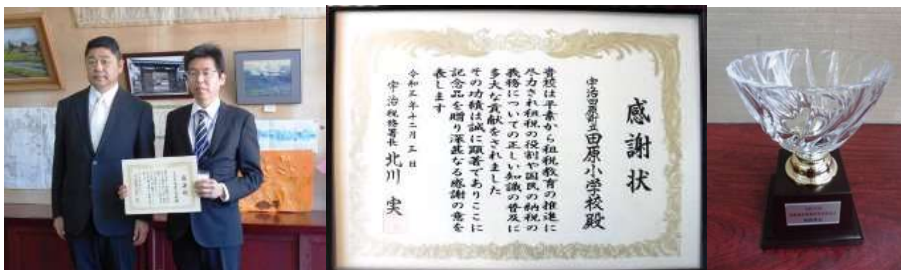 感謝状
宇治田原町立田原小学校殿
貴校は平素から租税教育の推進に
尽力され租税の役割や国民の納税の
義務についての正しい知識の普及に
多大な貢献をされました
その功績は誠に顕著でありここに
記念品を贈り深甚なる感謝の意を
表します
令和三年十二月三日
宇治税務署長 北川 実
感謝状